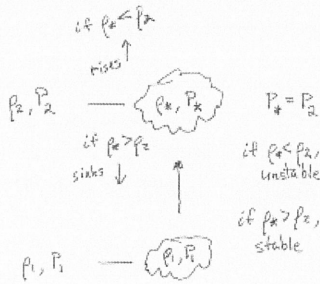 if ρ* < ρ2
rises
ρ2, P2
ρ*, P*
P* = P2
if ρ* > ρ2
sinks
if ρ* < ρ2,
unstable
if ρ* > ρ2,
stable
ρ1, P1
ρ1, P1